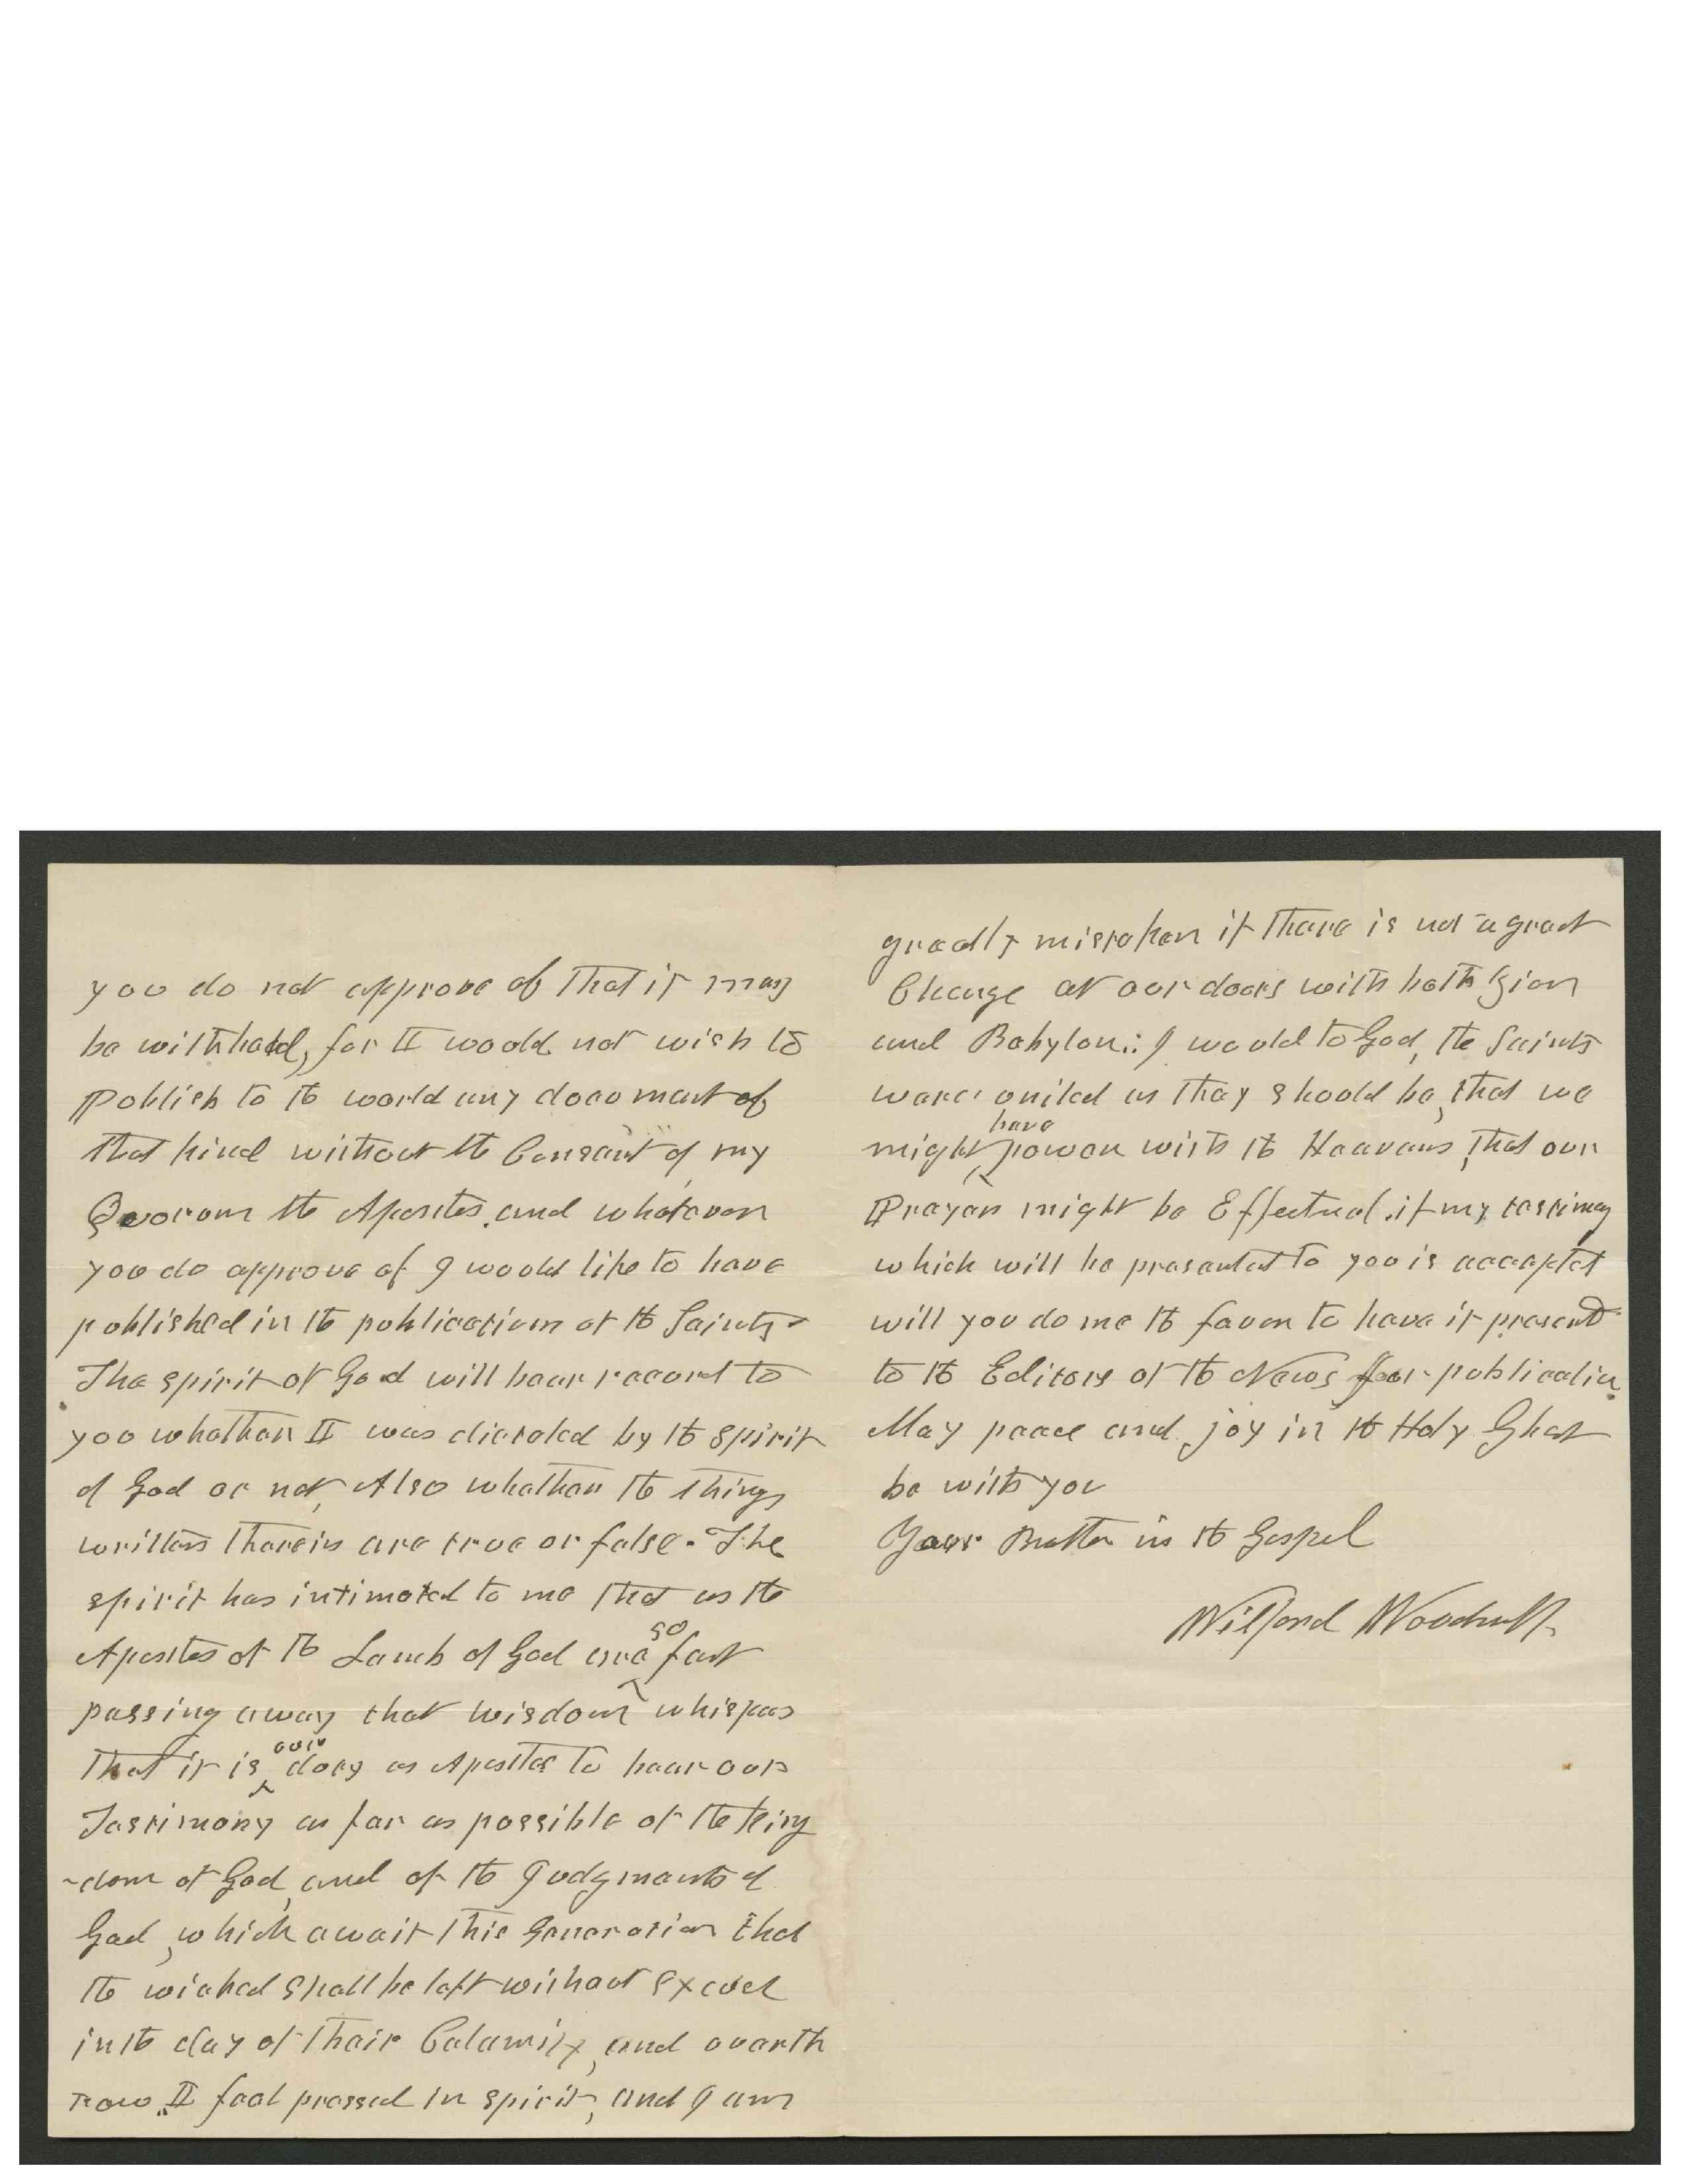 you do not approve of that it may
be withheld, for I would not wish to
Publish to the world any document of
that kind without the Consent of my
Quorum the Apostles, and whatever
you do approve of I would like to have
published in the publications of the Saints.
The spirit of God will bear record to
you whether I was dictated by the spirit
of God or not, Also whether the things
written therein are true or false. The
spirit has intimated to me that as the
Apostles of the Lamb of God are so fast
passing away that wisdom whispers
that it is our duty as Apostles to bear our
Testimony as far as possible of the king
-dom of God, and of the Judgments of
God, which await this Generation that
the wicked shall be left without excuse
in the day of their Calamity, and overth
row. I feel pressed in spirit, and I am
greatly mistaken if there is not a great
Change at our doors with both Zion
and Babylon: I would to God, the Saints
were united as they should be, that we
might have power with the Heavens, that our
Prayers might be Effectual. if my testimony
which will be presented to you is accepted
will you do me the favor to have it present
to the Editors of the News for publication.
May peace and joy in the Holy Ghost
be with you
Your Brother in the Gospel
Wilford Woodruff.